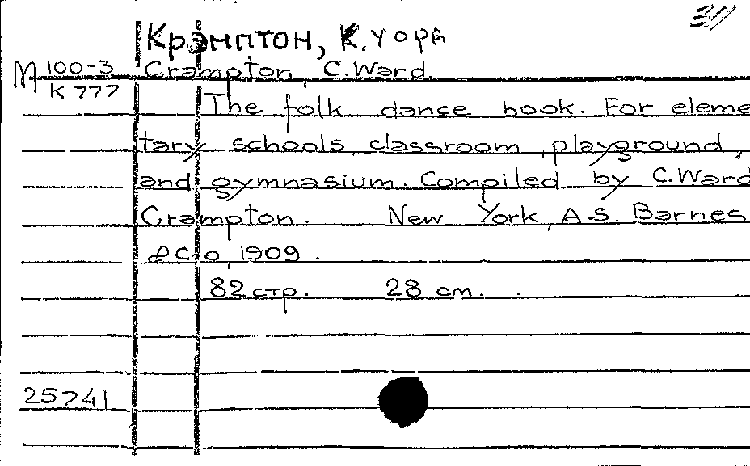 Крэмптон, К. Уорд
М 100-3
К 777
Crampton, C. Ward.
The folk dance book. For elemen
tary schools, classroom, playground,
and gymnasium. Compiled by C. Ward
Crampton. New York, A.S. Barnes
& Co, 1909.
82 стр. 28 cm.
25741